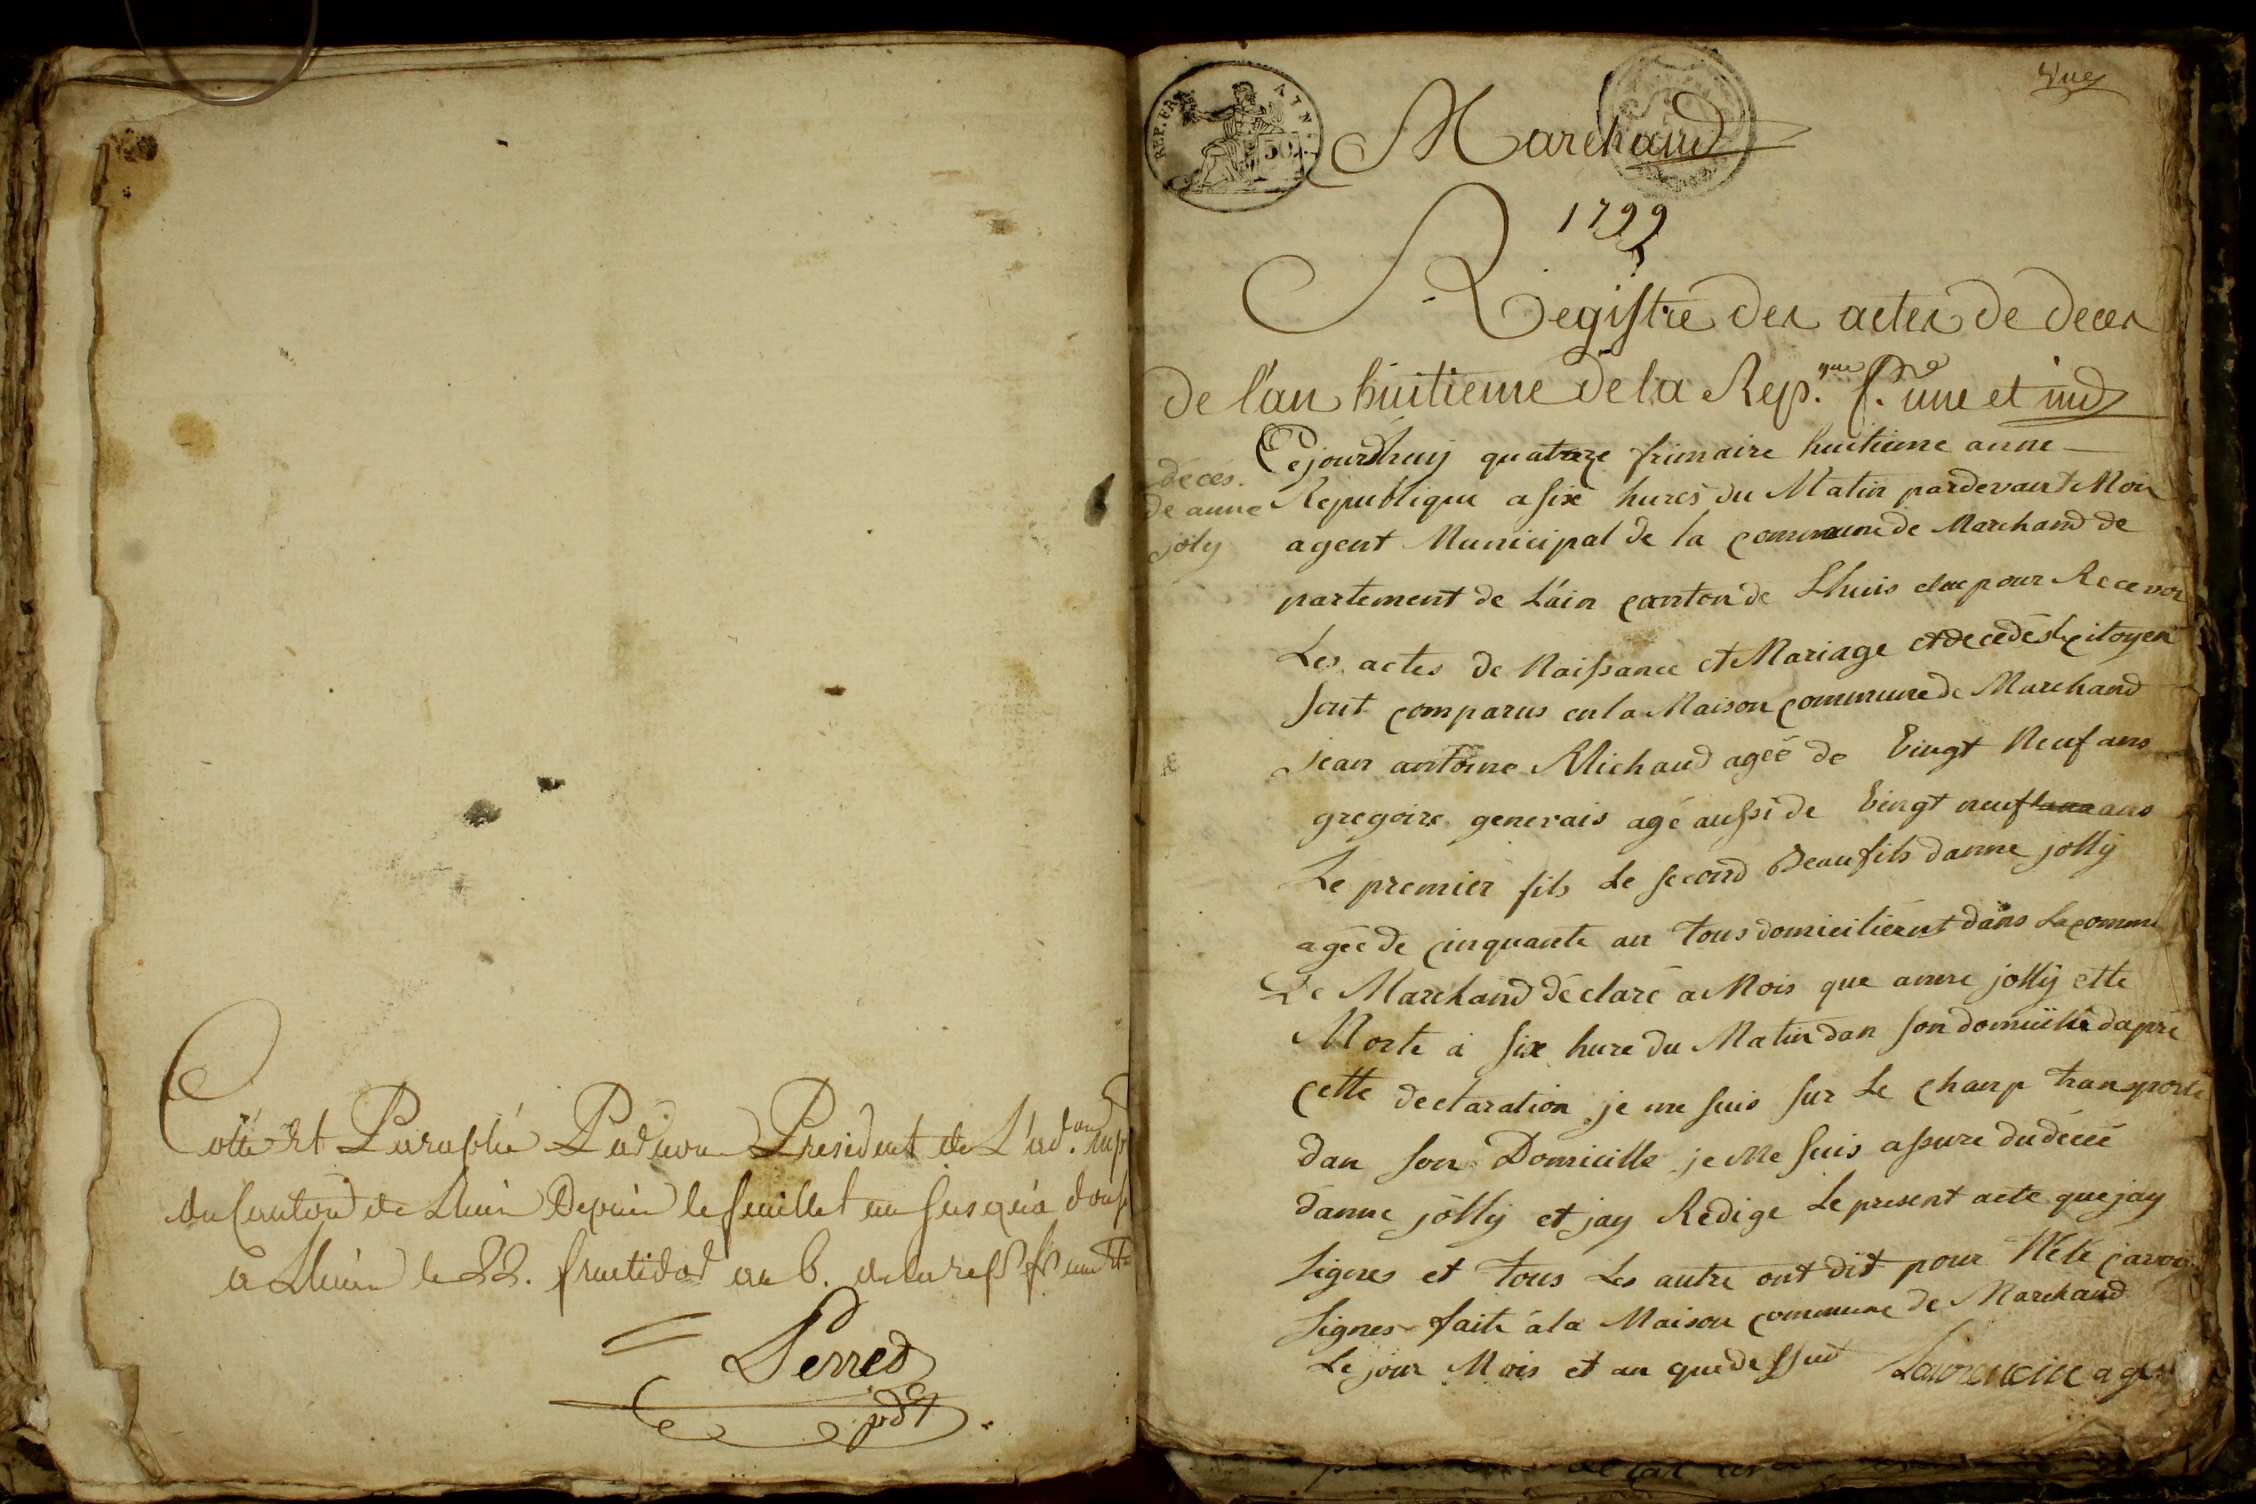 Cotté et Paraphé Par nous President de L'ad.on mup
du Canton de Lhuis Depuis le feuillet un jusqu'a douse
a Lhuis le 22. fructidor an 6. de la rep fse une
Perret
pdt
REP. FRA
AIN
50
une
Marchand
1799
Registre des actes de deces
de l'an huitieme de la Rep.que f. une et ind
déces.
de anne
joly
Cejourdhuy quatorze frimaire huitieme anne
Republique a six hures du Matin pardevant Moi
agent Municipal de la commune de Marchand de
partement de L'ain canton de Lhuis elue pour Recevoir
Les actes de Naissance et Mariage et decedés de citoyen
sont comparus en la Maison commune de Marchand
jean antoine Michaud ageé de vingt Neuf ans
gregoire generais agé aussi de vingt neuf ans
Le premier fils Le second Beaufils danne jolly
agée de cinquante an tous domicilierent dans La comm
De Marchand déclaré a Mois que anne jolly ette
Morte a six hure du Matin dan son domicille dapré
cette declaration je me suis sur Le champ transporte
dan son Domicille je Me suis assure du décée
danne jolly et jay Redige Le present acte que jay
signes et tous Les autre ont dit pour Nété
signes faite à la Maison commune de Marchand
Le jour Mois et an que dessus agent